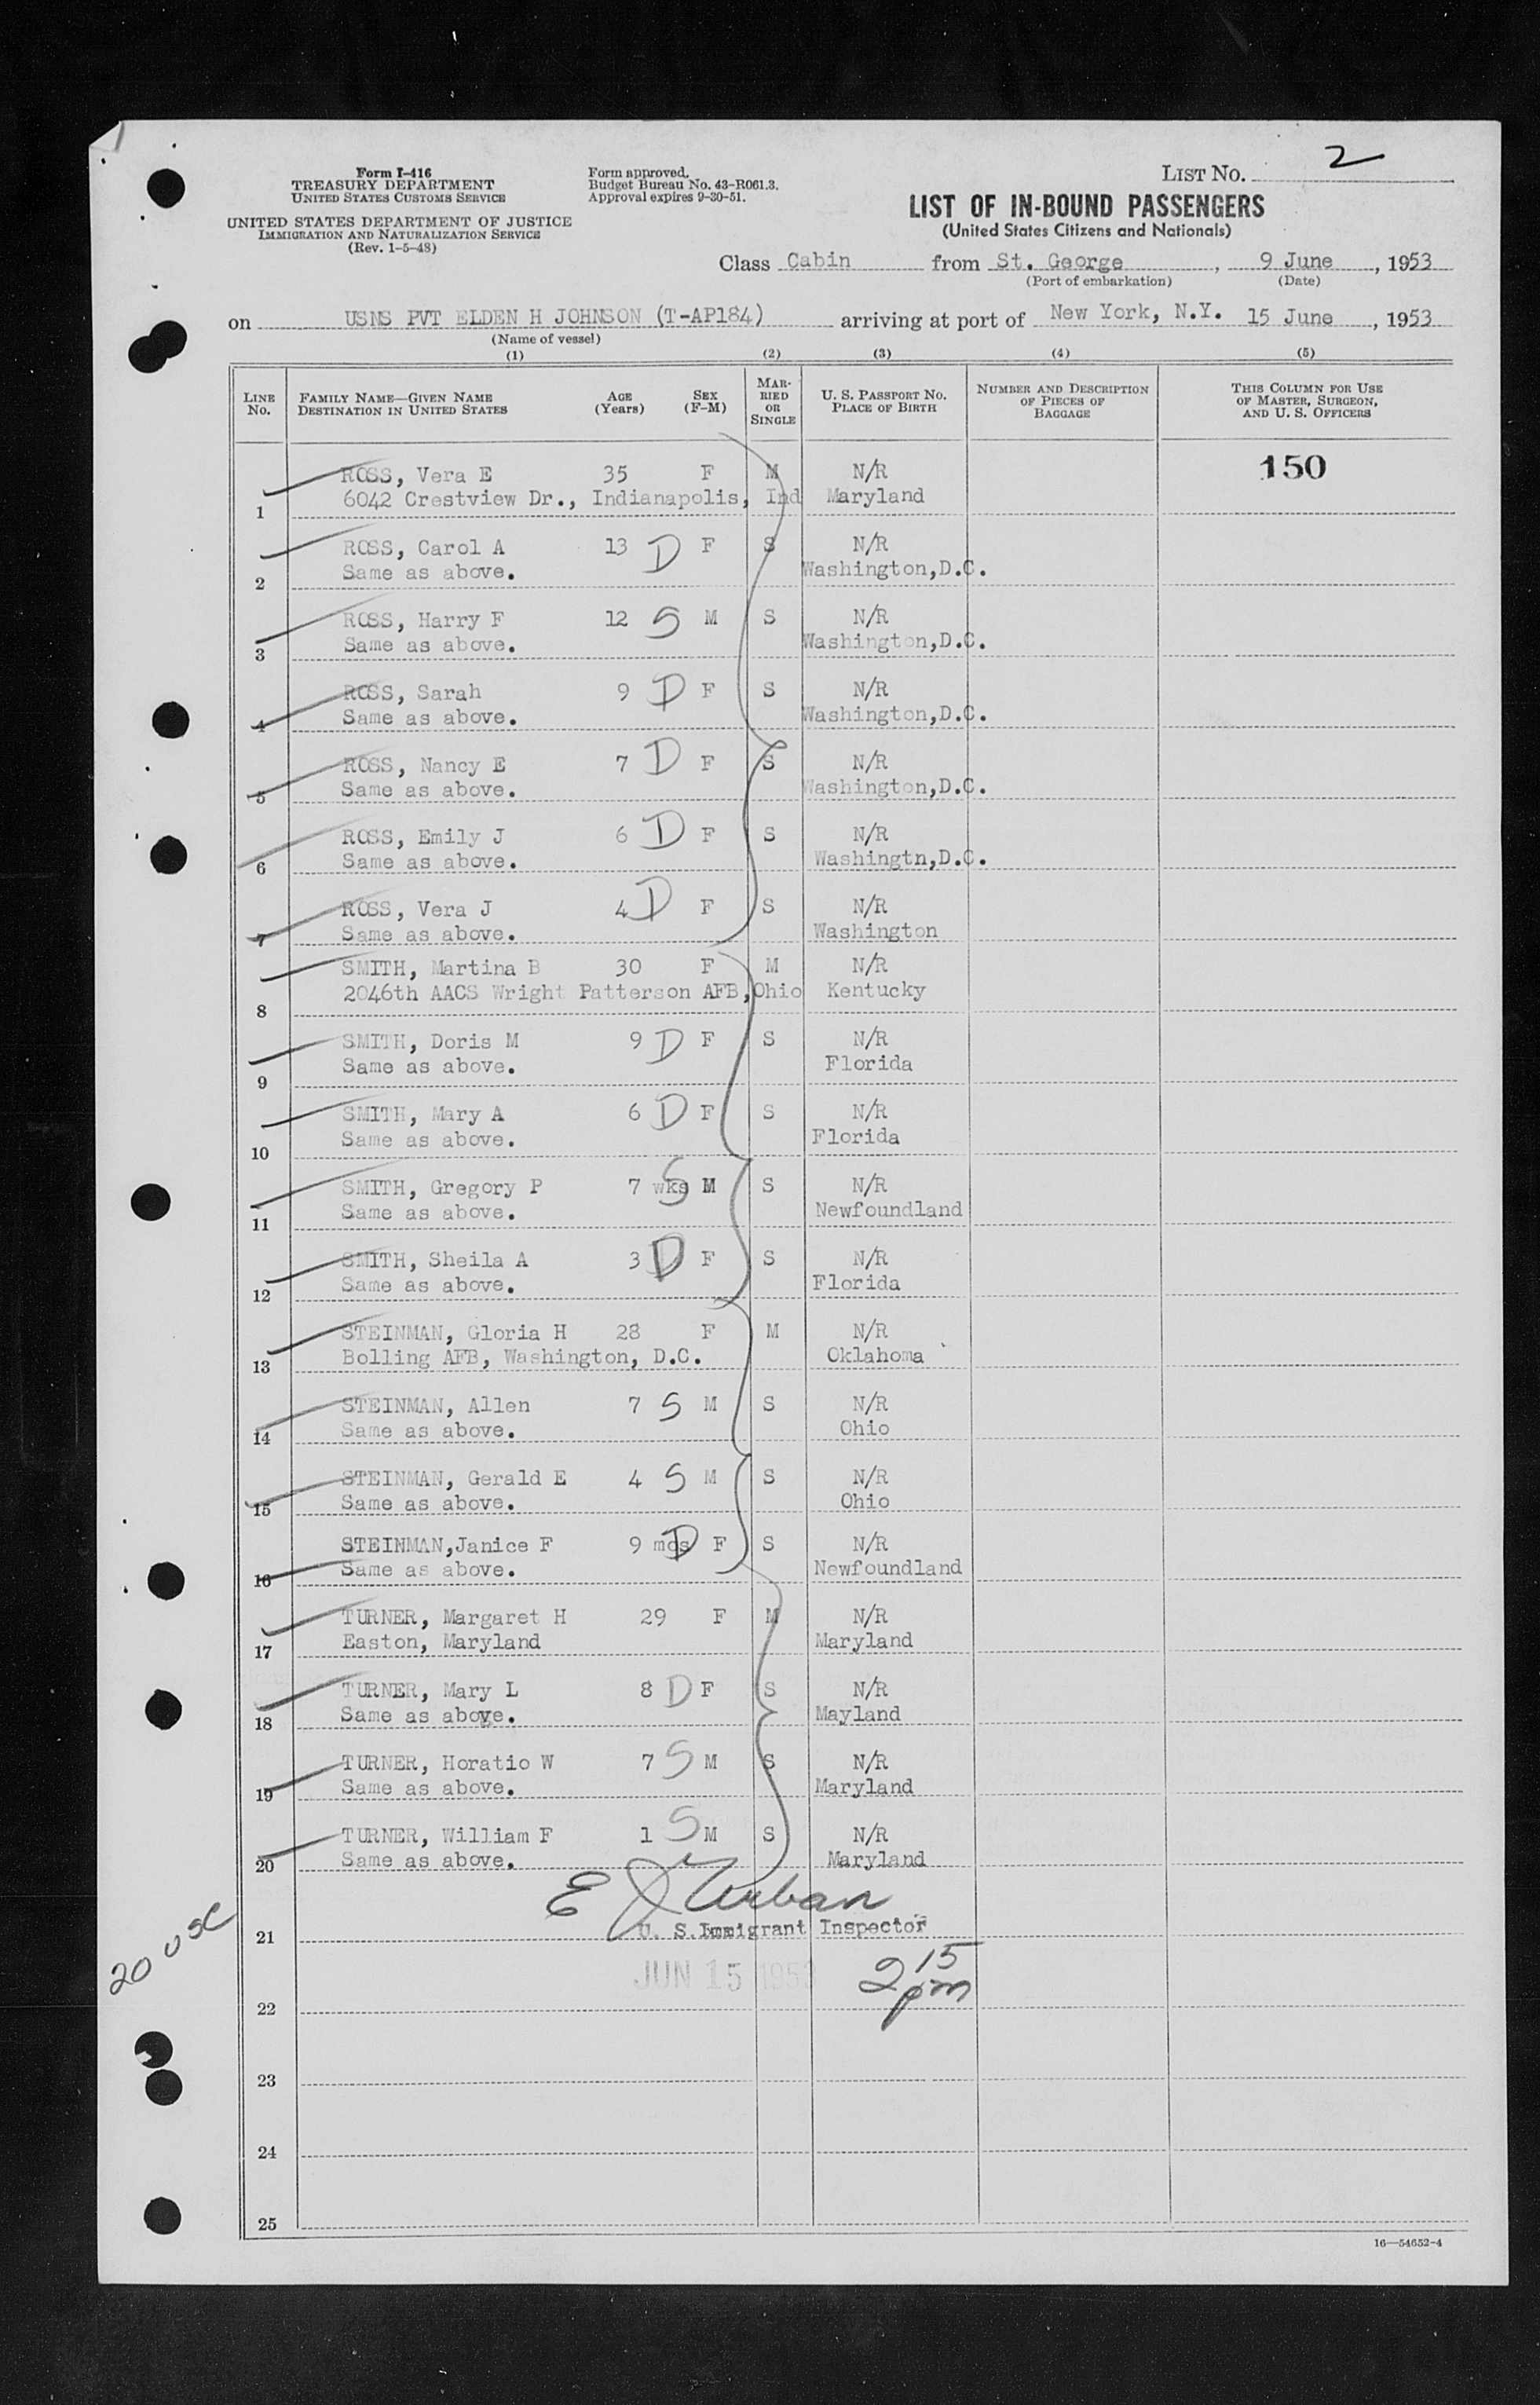 Form I-416
TREASURY DEPARTMENT
UNITED STATES CUSTOMS SERVICE
UNITED STATES DEPARTMENT OF JUSTICE
IMMIGRATION AND NATURALIZATION SERVICE
(Rev. 1-5-48)
Form approved.
Budget Bureau No. 43-R061.3.
Approval expires 9-30-51.
LIST No. 2
LIST OF IN-BOUND PASSENGERS
(United States Citizens and Nationals)
Class Cabin from St. George, 9 June, 1953
(Port of embarkation) (Date)
on USNS PVT ELDEN H JOHNSON (T-AP184) arriving at port of New York, N.Y. 15 June, 1953
(Name of vessel)
(1) (2) (3) (4) (5)
LINE No. FAMILY NAME—GIVEN NAME DESTINATION IN UNITED STATES AGE (Years) SEX (F-M) MARRIED OR SINGLE U. S. PASSPORT No. PLACE OF BIRTH NUMBER AND DESCRIPTION OF PIECES OF BAGGAGE THIS COLUMN FOR USE OF MASTER, SURGEON, AND U. S. OFFICERS
150
ROSS, Vera E 35 F M N/R
1 6042 Crestview Dr., Indianapolis, Ind Maryland
ROSS, Carol A 13 D F S N/R
2 Same as above. Washington,D.C.
ROSS, Harry F 12 S M S N/R
3 Same as above. Washington,D.C.
ROSS, Sarah 9 D F S N/R
4 Same as above. Washington,D.C.
ROSS, Nancy E 7 D F S N/R
5 Same as above. Washington,D.C.
ROSS, Emily J 6 D F S N/R
6 Same as above. Washingtn,D.C.
ROSS, Vera J 4 D F S N/R
7 Same as above. Washington
SMITH, Martina B 30 F M N/R
8 2046th AACS Wright Patterson AFB,Ohio Kentucky
SMITH, Doris M 9 D F S N/R
9 Same as above. Florida
SMITH, Mary A 6 D F S N/R
10 Same as above. Florida
SMITH, Gregory P 7 wks S M S N/R
11 Same as above. Newfoundland
SMITH, Sheila A 3 D F S N/R
12 Same as above. Florida
STEINMAN, Gloria H 28 F M N/R
13 Bolling AFB, Washington, D.C. Oklahoma
STEINMAN, Allen 7 S M S N/R
14 Same as above. Ohio
STEINMAN, Gerald E 4 S M S N/R
15 Same as above. Ohio
STEINMAN,Janice F 9 mos D F S N/R
16 Same as above. Newfoundland
TURNER, Margaret H 29 F M N/R
17 Easton, Maryland Maryland
TURNER, Mary L 8 D F S N/R
18 Same as above. Mayland
TURNER, Horatio W 7 S M S N/R
19 Same as above. Maryland
TURNER, William F 1 S M S N/R
20 Same as above. Maryland
E J Urban
20 USC
21 U. S. Immigrant Inspector
JUN 15 1953 2 15 pm
22
23
24
25
16—54652-4